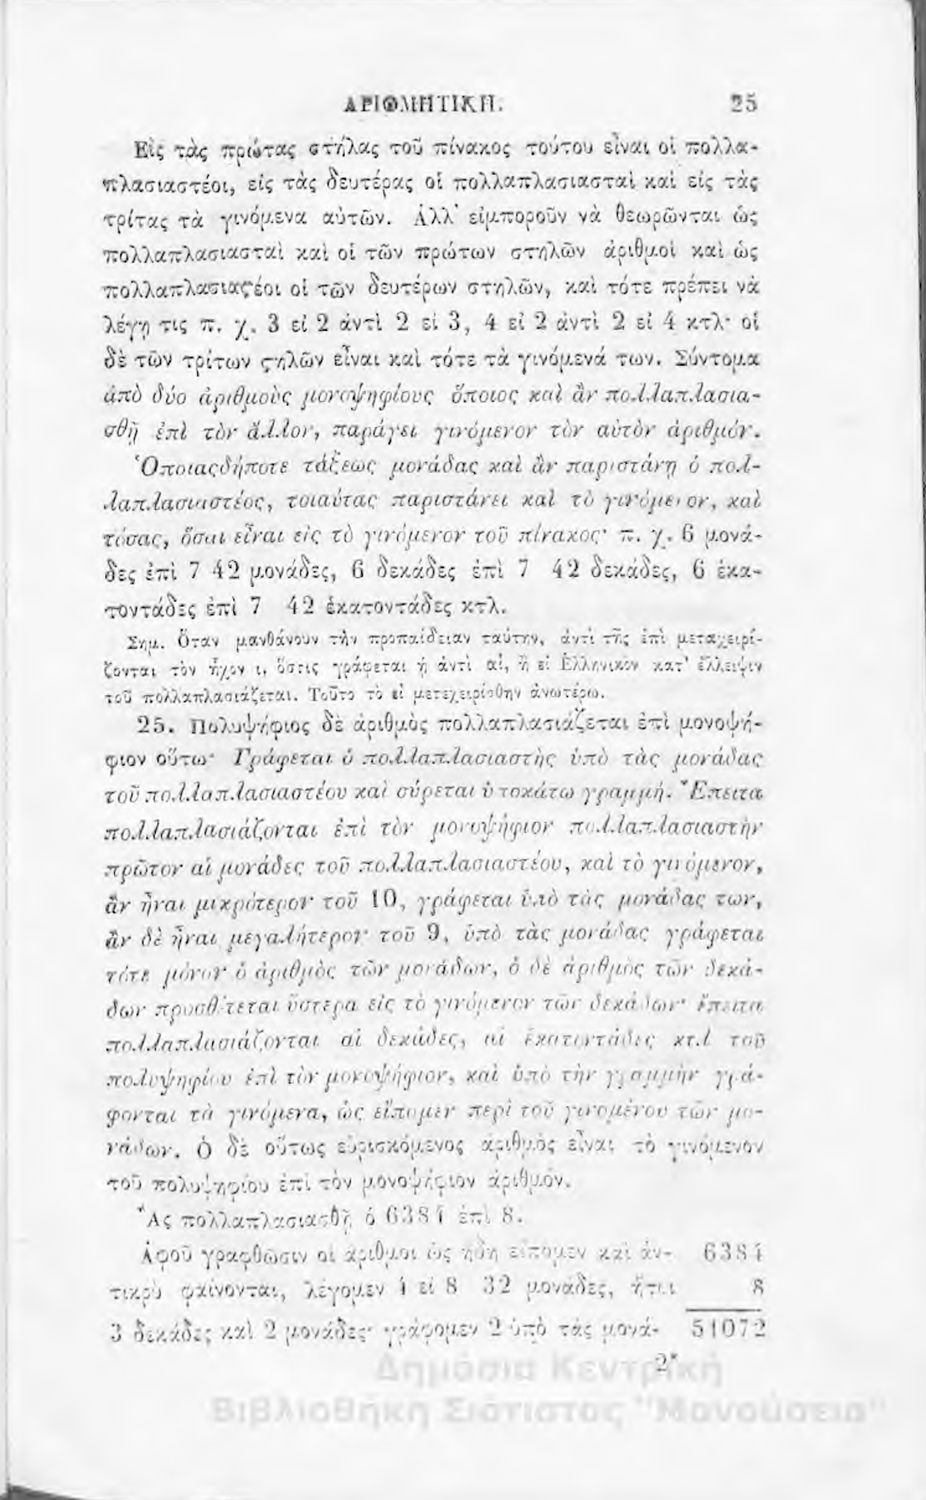 ΑΡΙΘΜΗΤΙΚΗ. 25
Εἰς τὰς πρώτας στήλας τοῦ πίνακος τούτου εἶναι οἱ πολλα-
πλασιαστέοι, εἰς τὰς δευτέρας οἱ πολλαπλασιασταὶ καὶ εἰς τὰς
τρίτας τὰ γινόμενα αὐτῶν. Ἀλλ' εἰμποροῦν νὰ θεωρῶνται ὡς
πολλαπλασιασταὶ καὶ οἱ τῶν πρώτων στηλῶν ἀριθμοὶ καὶ ὡς
πολλαπλασιαϛέοι οἱ τῶν δευτέρων στηλῶν, καὶ τότε πρέπει νὰ
λέγῃ τις π. χ. 3 εἰ 2 ἀντὶ 2 εἰ 3, 4 εἰ 2 ἀντὶ 2 εἰ 4 κτλ· οἱ
δὲ τῶν τρίτων ϛηλῶν εἶναι καὶ τότε τὰ γινόμενά των. Σύντομα
ἀπὸ δύο ἀριθμοὺς μονοψηφίους ὅποιος καὶ ἂν πολλαπλασια-
σθῇ ἐπὶ τὸν ἄλλον, παράγει γινόμενον τὸν αὐτὸν ἀριθμόν.
Ὁποιαςδήποτε τάξεως μονάδας καὶ ἂν παριστάνῃ ὁ πολ-
λαπλασιαστέος, τοιαύτας παριστάνει καὶ τὸ γινόμενον, καὶ
τόσας, ὅσαι εἶναι εἰς τὸ γινόμενον τοῦ πίνακος· π. χ. 6 μονά-
δες ἐπὶ 7 42 μονάδες, 6 δεκάδες ἐπὶ 7 42 δεκάδες, 6 ἑκα-
τοντάδες ἐπὶ 7 42 ἑκατοντάδες κτλ.
Σημ. Ὅταν μανθάνουν τὴν προπαίδειαν ταύτην, ἀντὶ τῆς ἐπὶ μεταχειρί-
ζονται τὸν ἦχον ι, ὅστις γράφεται ἢ ἀντὶ αἱ, ἢ εἰ Ἑλληνικὸν κατ' ἔλλειψιν
τοῦ πολλαπλασιάζεται. Τοῦτο τὸ εἰ μετεχειρίσθην ἀνωτέρω.
25. Πολυψήφιος δὲ ἀριθμὸς πολλαπλασιάζεται ἐπὶ μονοψή-
φιον οὕτω· Γράφεται ὁ πολλαπλασιαστὴς ὑπὸ τὰς μονάδας
τοῦ πολλαπλασιαστέου καὶ σύρεται ὑποκάτω γραμμή. Ἔπειτα
πολλαπλασιάζονται ἐπὶ τὸν μονοψήφιον πολλαπλασιαστὴν
πρῶτον αἱ μονάδες τοῦ πολλαπλασιαστέου, καὶ τὸ γινόμενον,
ἂν ἦναι μικρότερον τοῦ 10, γράφεται ὑπὸ τὰς μονάδας των,
ἂν δὲ ἦναι μεγαλήτερον τοῦ 9, ὑπὸ τὰς μονάδας γράφεται
τότε μόνον ὁ ἀριθμὸς τῶν μονάδων, ὁ δὲ ἀριθμὸς τῶν δεκά-
δων προσθέτεται ὕστερα εἰς τὸ γινόμενον τῶν δεκάδων· ἔπειτα
πολλαπλασιάζονται αἱ δεκάδες, αἱ ἑκατοντάδες κτλ τοῦ
πολυψηφίου ἐπὶ τὸν μονοψήφιον, καὶ ὑπὸ τὴν γραμμὴν γρά-
φονται τὰ γινόμενα, ὡς εἴπομεν περὶ τοῦ γινομένου τῶν μο-
νάδων. Ὁ δὲ οὕτως εὑρισκόμενος ἀριθμὸς εἶναι τὸ γινόμενον
τοῦ πολυψηφίου ἐπὶ τὸν μονοψήφιον ἀριθμόν.
Ἂς πολλαπλασιασθῇ ὁ 6384 ἐπὶ 8.
Ἀφοῦ γραφθῶσιν οἱ ἀριθμοὶ ὡς ἤδη εἴπομεν καὶ ἀν- 6384
τικρὺ φαίνονται, λέγομεν 4 εἰ 8 32 μονάδες, ἤτοι 8
3 δεκάδες καὶ 2 μονάδες· γράφομεν 2 ὑπὸ τὰς μονά- 51072
2*
Δημόσια Κεντρική
Βιβλιοθήκη Σιάτιστας "Μανούσεια"